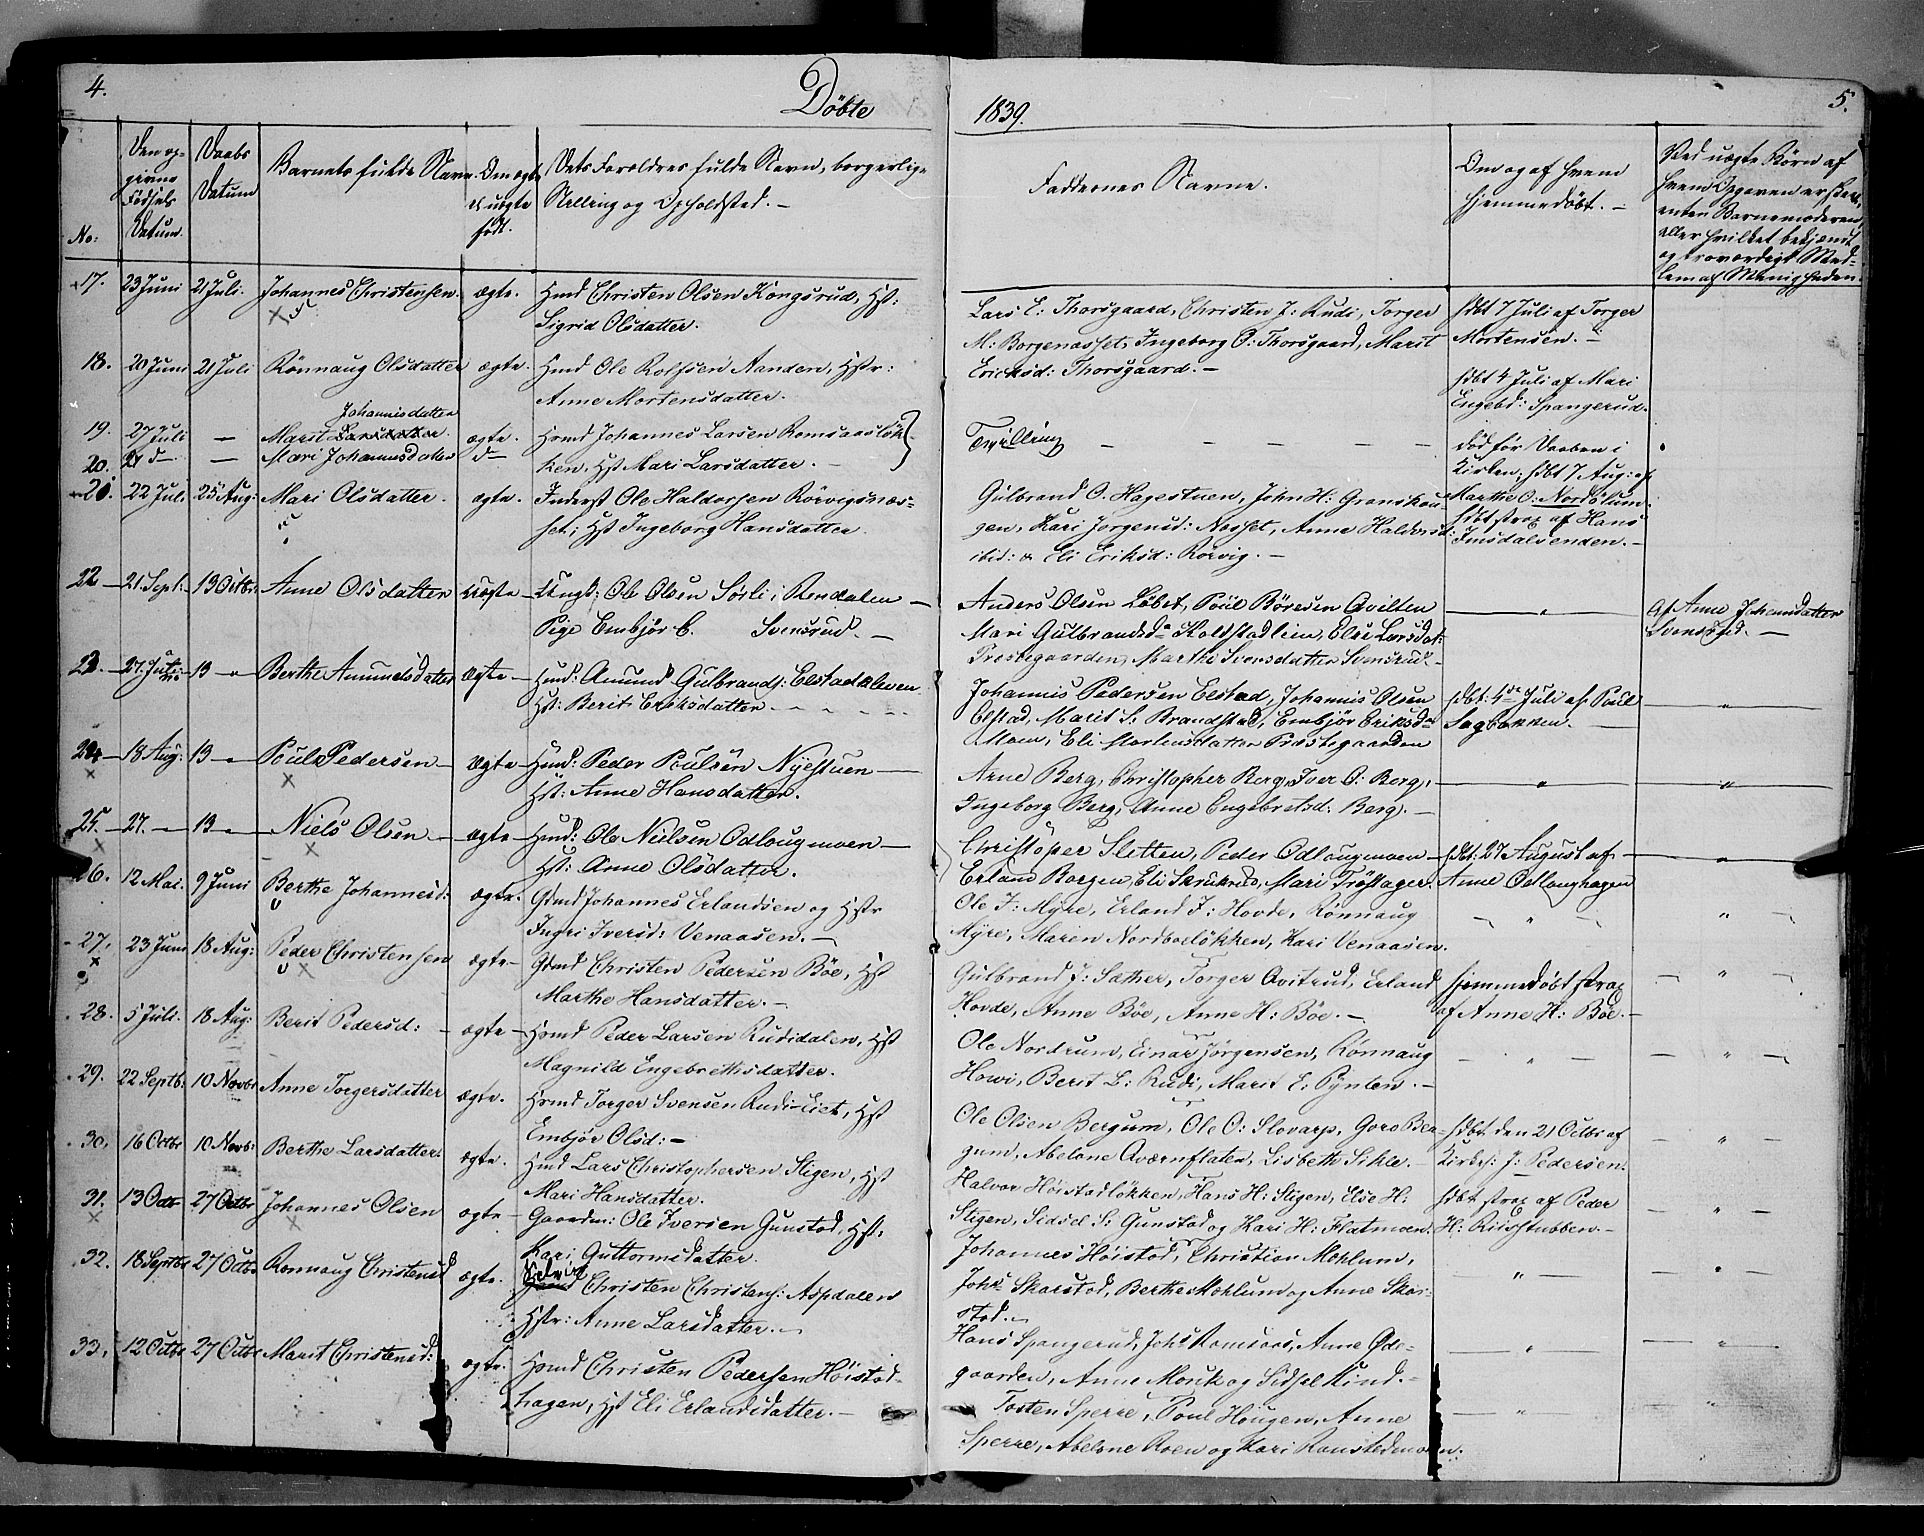 4.
Döbte
1839.
5.
No:
Den op-
givne
Födsels
Datum.
Daabs
Datum
Barnets fulde Navn.
Om ægte
el uægte
født.
Dets Foreldres fulde Navn, borgerlige
Stilling og Opholdsted. -
Faddernes Navne.
Om og af hvem
hjemmedöbt. -
Ved uægte Børn af
hvem Opgaven er skeet,
enten Barnemoderen,
eller hvilket bekjendt
og troværdigt Med-
lem af Menigheden.
17. 23 Juni 21 Juli. Johannes Christensen. ægte. Hmd Christen Olsen Kongsrud, Hst:
Sigrid Olsdatter.
Lars E: Thorsgaard, Christen J: Rudi, Torger
M: Borgenasset, Ingeborg O: Thorsgaard, Marit
Ericksd: Thorsgaard. -
hdbt 7 Juli af Torger
Mortensen. -
18. 20 Juni 21 Juli Rönnaug Olsdatter ægte. Hmd Ole Rolfsen Aanden, Hstr:
Anne Mortensdatter.
hdbt 4 Juli af Mari
Engebd: Spangerud.
19. 27 Juli — Marit Larsdatter Johannisdatter ægte. Hsmd Johannes Larsen Romsaaslök-
20. 27 d — Mari Johannisdatter do ken, Hst Mari Larsdatter. -
Tvilling — — — — —
död før Daaben i
Kirken, hdbt 7 Aug: af
Marthe O: Nordölum.
21. 22 Juli 25 Aug: Mari Olsdatter. ægte. Inderst Ole Haldorsen Rörvigsnæs-
set; Hst Ingeborg Hansdatter.
Gulbrand O. Hagestuen, John H: Granskou-
gen, Kari Jorgensd: Nesset, Anne Haldorsd:
ibid: & Eli Eriksd: Rorvig. -
hdbt strax af Hans
Jinsdalsenden. -
22 — 21. Sept: 13 Octbr: Anne Olsdatter Uægte — Ungk: Ole Olsen Sörli i Rendalen —
Pige Embjör C. Svensrud. —
Anders Olsen Löbet, Poul Böresen Qvilten
Mari Gulbrandsdr Koldstadlien, Else Larsdat:
Prestegaarden, Marthe Svensdatter Svensrud -
— " —
Af Anne Johansdatter
Svensrud. —
23. — 27. Juni 13 — Berthe Amundsdatter Ægte — Hmd: Amund Gulbrands: Elstadeleven
Hst: Berit Eriksdatter - - - -
Johannis Pedersen Elstad, Johannis Olsen
Elstad, Marit S: Brandstad, Embjör Eriksdr
Moen, Eli Mortensdatter Prestegaarden
hdbt: 4de Juli af Poul
Sagbakken. —
24 — 18 Aug: 13 — Poul Pedersen — Ægte — Hmd: Peder Poulsen Nyestuen —
Hst: Anne Hansdatter.
Arne Berg, Christopher Berg, Iver O: Berg,
Ingeborg Berg, Anne Engebretsd: Berg. —
— " —
25. — 27. — 13 — Niels Olsen — ægte — Hmd: Ole Nielsen Odlougmoen —
Hst: Anne Olsdatter.
Christoper Sletten, Peder Odlougmoen —
Erland Borgen, Eli Skrukrud, Mari Tröstager.
hdbt: 27 August af —
Anne Odlonghagen
26. 12 Mai. 9 Juni Berthe Johannesd: ægte. Gdmd Johannes Erlandsen og Hstr
Ingri Iversd: Venaasen. —
Ole J: Myre, Erland J: Hovde, Rönnaug
Myre, Maren Nordboelökken, Kari Venaasen.
27. 23 Juni 18 Aug: Peder Christensen ægte — Gdmd Christen Pedersen Böe, Hst
Marthe Hansdatter. —
Gulbrand J: Sather, Torger Qvitrud, Erland
Hovde, Anne Böe, Anne H: Böe. —
hjemmedöbt strax
af Anne H: Böe. —
28. 5 Juli. 18 Aug: Berit Pedersd: — ægte — Hsmd Peder Larsen Rudidalen, Hst
Magnild Engebrethsdatter.
Ole Nordrum, Einar Jörgensen, Rönnaug
Howi, Berit L: Rudi, Marit E: Pynten. —
29. 22 Septb: 10 Novbr Anne Torgersdatter ægte. Hsmd Torger Svensen Rudi-Eiet, Hst
Embjör Olsd: —
Ole Olsen Bergum, Ole O: Slovarp, Goro Ber-
gum, Abelone Qværnflaten, Lisbeth Sihle. —
hdbt. den 21 Octbr af
Kirkes: J: Pedersen.
30. 16 Octbr 10 Novb: Berthe Larsdatter. ægte. Hmd Lars Christophersen Stigen, Hst
Mari Hansdatter.
Halvor Höistadlökken, Hans H: Stigen, Else H:
Stigen, Sidsel S: Gunstad og Kari H: Flatmoen.
hdbt strax af Peder
H: Riisestubben. —
31. 13 Octbr 27 Octbr Johannes Olsen ægte — Gaardm: Ole Iversen Gunstad, Hst.
Kari Guttormsdatter.
Johannes Höistad, Christian Mæhlum,
Johs Skarstad, Berthe Mæhlum og Anne Skar-
stad. —
32. 18 Septbr 27 Octbr Rönnaug Christensd ægte. Selvei Christen Christens: Aspdalen
Hstr: Anne Larsdatter. —
Hans Spangerud, Johs Romsaas, Anne Öde-
gaarden, Anne Mouk og Sidsel Kind. —
33. 12 Octbr 27 Octbr Marit Christensd: ægte. Hsmd Christen Pedersen Höistad-
hagen, Hst Eli Erlandsdatter. —
Tosten Sperre, Poul Hougen, Anne
Sperre, Abelone Roen og Kari Ranstedmoen.